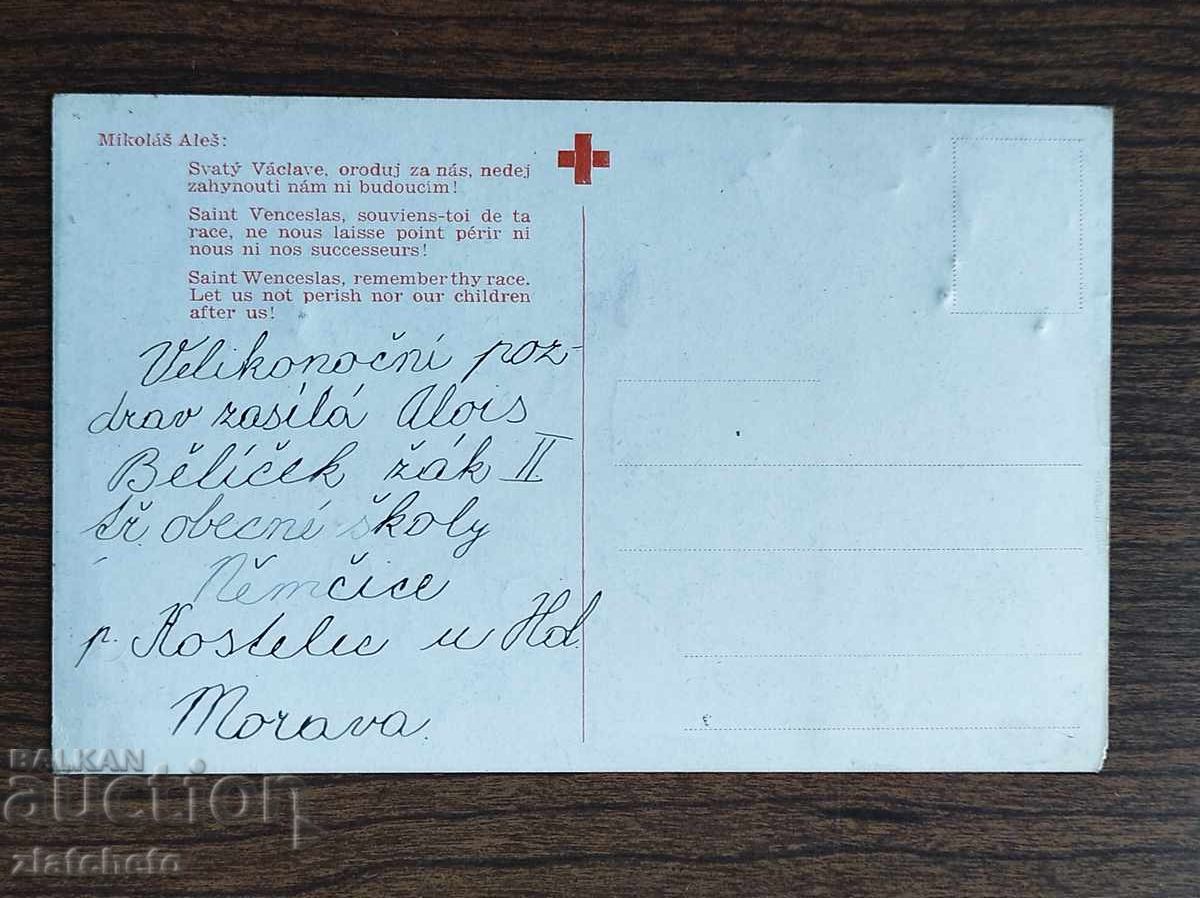 Mikoláš Aleš:
Svatý Václave, oroduj za nás, nedej
zahynouti nám ni budoucím!
Saint Venceslas, souviens-toi de ta
race, ne nous laisse point périr ni
nous ni nos successeurs!
Saint Wenceslas, remember thy race.
Let us not perish nor our children
after us!
Velikonoční poz-
drav zasílá Alois
Bělíček žák II
tř. obecné školy
Němčice
p. Kostelec u Hol.
Morava.
BALKAN
auction
zlatcheto